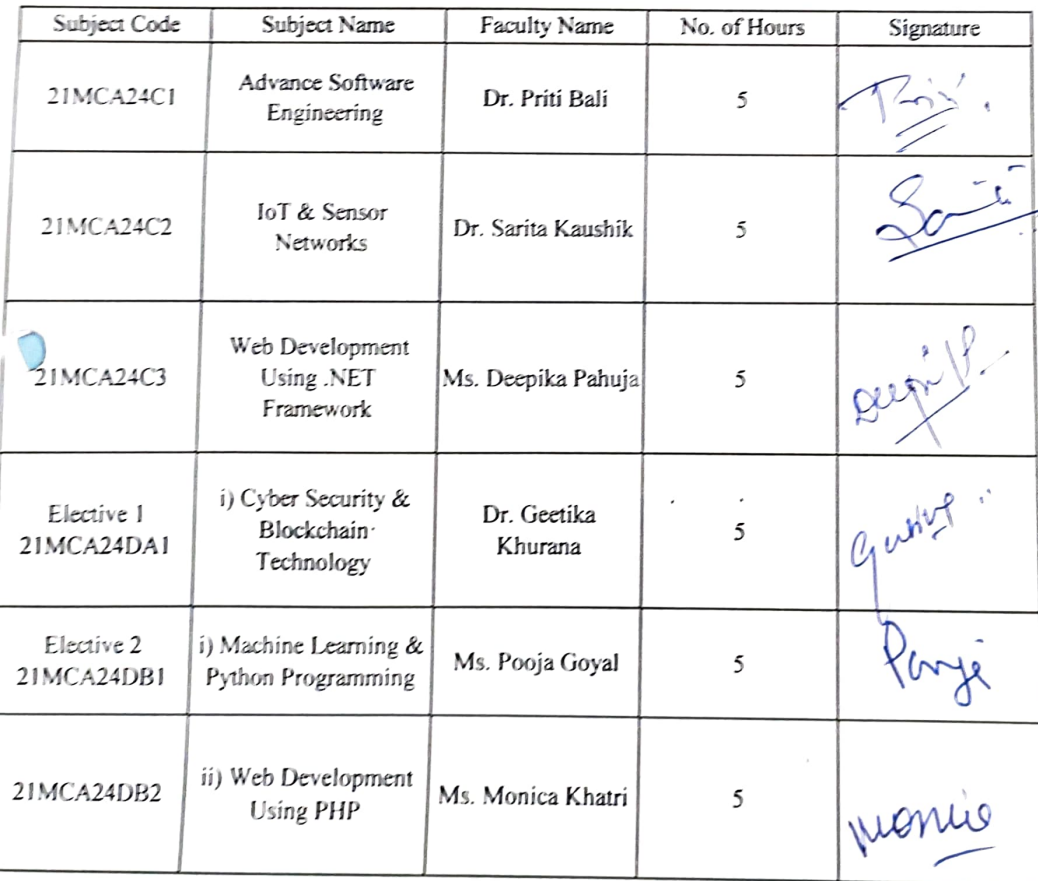 Subject Code Subject Name Faculty Name No. of Hours Signature
21MCA24C1 Advance Software Engineering Dr. Priti Bali 5
21MCA24C2 IoT & Sensor Networks Dr. Sarita Kaushik 5
21MCA24C3 Web Development Using .NET Framework Ms. Deepika Pahuja 5
Elective 1 21MCA24DA1 i) Cyber Security & Blockchain Technology Dr. Geetika Khurana 5
Elective 2 21MCA24DB1 i) Machine Learning & Python Programming Ms. Pooja Goyal 5
21MCA24DB2 ii) Web Development Using PHP Ms. Monica Khatri 5